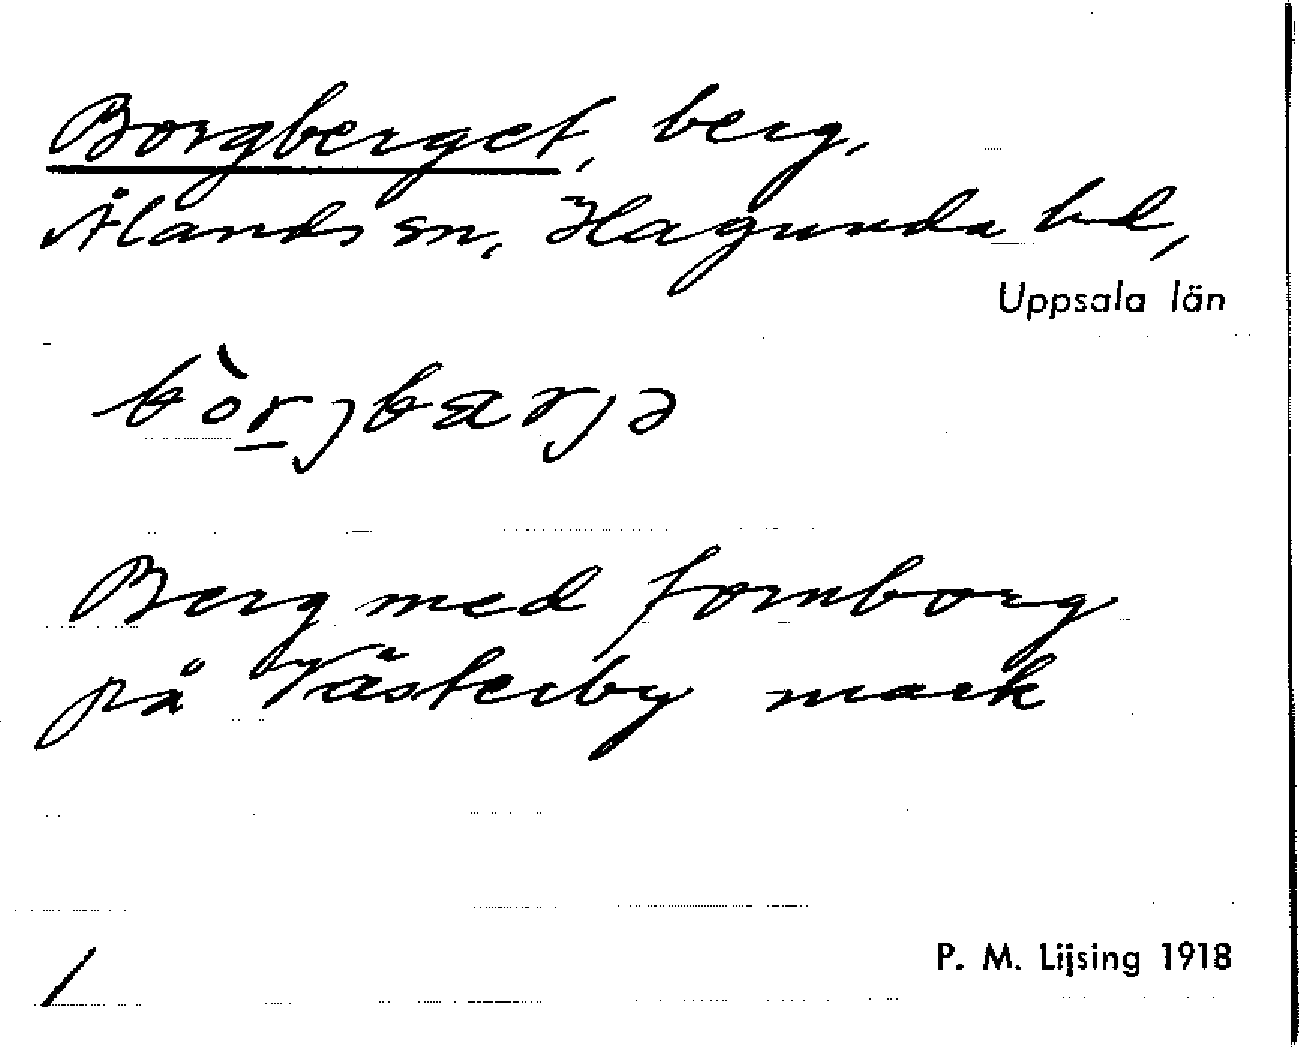 Borgberget, berg,
Ålands sn, Hagunda hd,
Uppsala län
bòrjbærjə
Berg med fornborg
på Västerby mark
P. M. Lijsing 1918